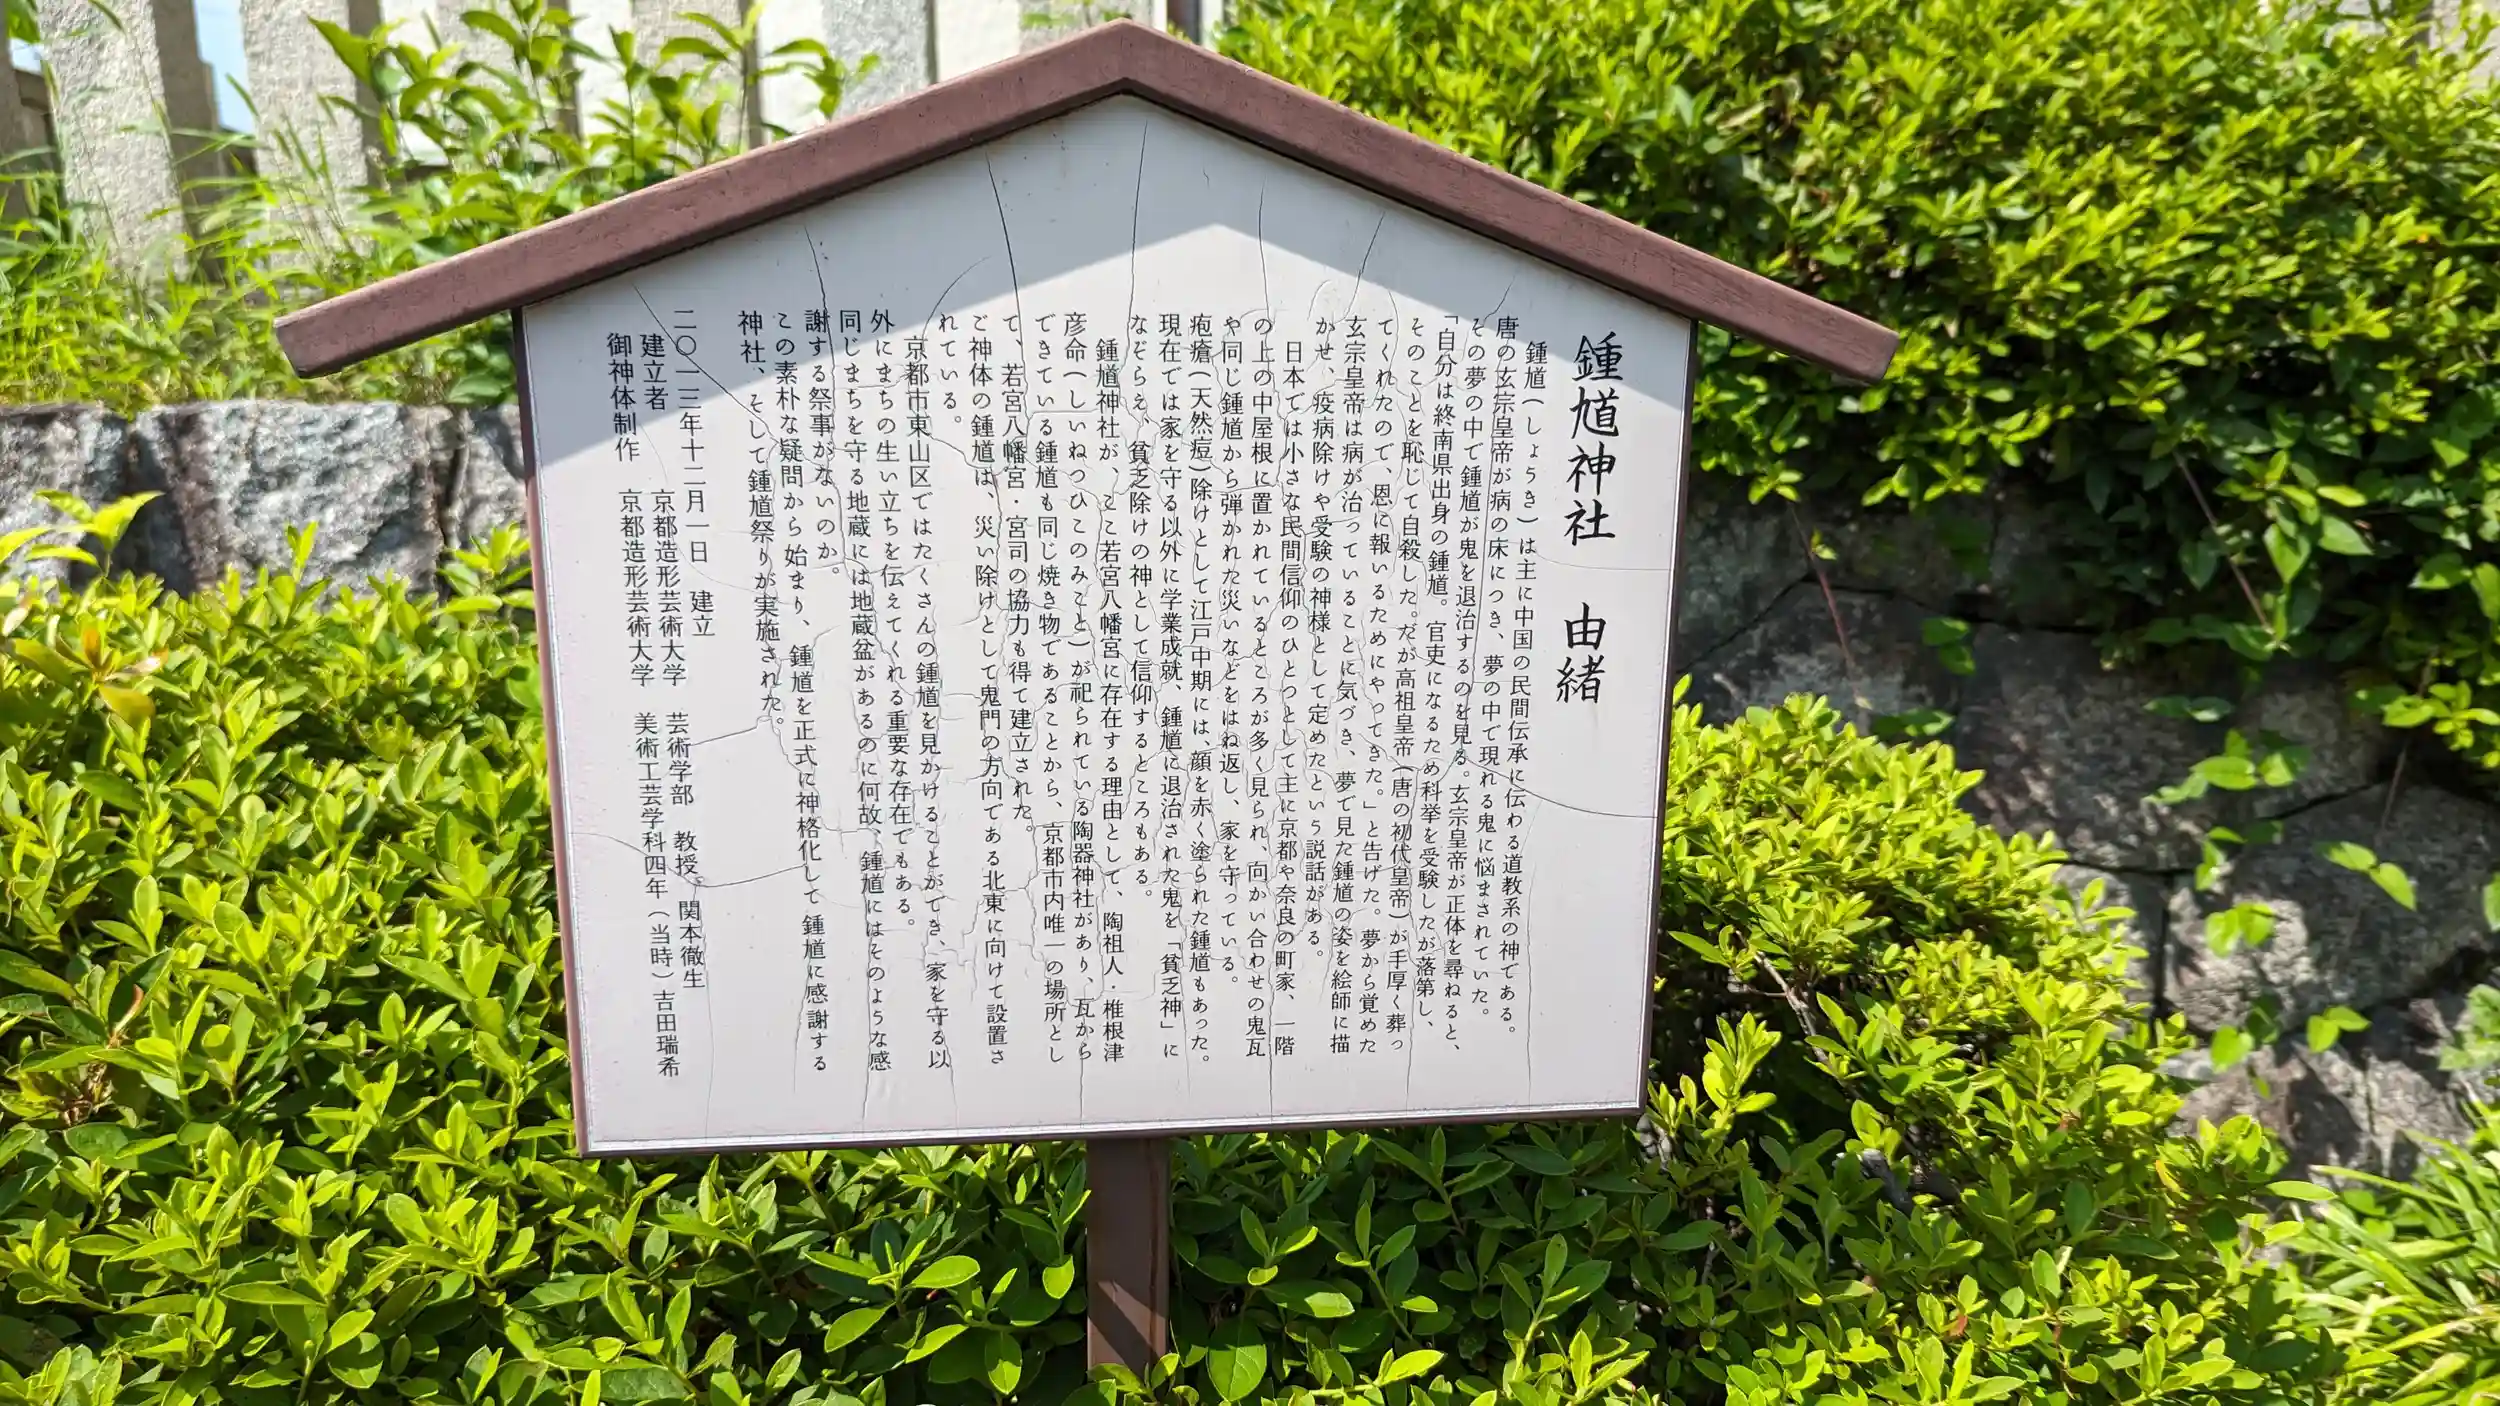 鍾馗神社　由緒
　鍾馗(しょうき)は主に中国の民間伝承に伝わる道教系の神である。
唐の玄宗皇帝が病の床につき、夢の中で現れる鬼に悩まされていた。
その夢の中で鍾馗が鬼を退治するのを見る。玄宗皇帝が正体を尋ねると、
「自分は終南県出身の鍾馗。官吏になるため科挙を受験したが落第し、
そのことを恥じて自殺した。だが高祖皇帝(唐の初代皇帝)が手厚く葬っ
てくれたので、恩に報いるためにやってきた。」と告げた。夢から覚めた
玄宗皇帝は病が治っていることに気づき、夢で見た鍾馗の姿を絵師に描
かせ、疫病除けや受験の神様として定めたという説話がある。
　日本では小さな民間信仰のひとつとして主に京都や奈良の町家、一階
の上の中屋根に置かれているところが多く見られ、向かい合わせの鬼瓦
や同じ鍾馗から弾かれた災いなどをはね返し、家を守っている。
疱瘡(天然痘)除けとして江戸中期には、顔を赤く塗られた鍾馗もあった。
現在では家を守る以外に学業成就、鍾馗に退治された鬼を「貧乏神」に
なぞらえ、貧乏除けの神として信仰するところもある。
　鍾馗神社が、ここ若宮八幡宮に存在する理由として、陶祖人・椎根津
彦命(しいねつひこのみこと)が祀られている陶器神社があり、瓦から
できている鍾馗も同じ焼き物であることから、京都市内唯一の場所とし
て、若宮八幡宮・宮司の協力も得て建立された。
ご神体の鍾馗は、災い除けとして鬼門の方向である北東に向けて設置さ
れている。
　京都市東山区ではたくさんの鍾馗を見かけることができ、家を守る以
外にまちの生い立ちを伝えてくれる重要な存在でもある。
同じまちを守る地蔵には地蔵盆があるのに何故、鍾馗にはそのような感
謝する祭事がないのか。
この素朴な疑問から始まり、鍾馗を正式に神格化して鍾馗に感謝する
神社、そして鍾馗祭りが実施された。
二〇一三年十二月一日　建立
建立者　京都造形芸術大学　芸術学部　教授　関本徹生
御神体制作　京都造形芸術大学　美術工芸学科四年(当時)吉田瑞希